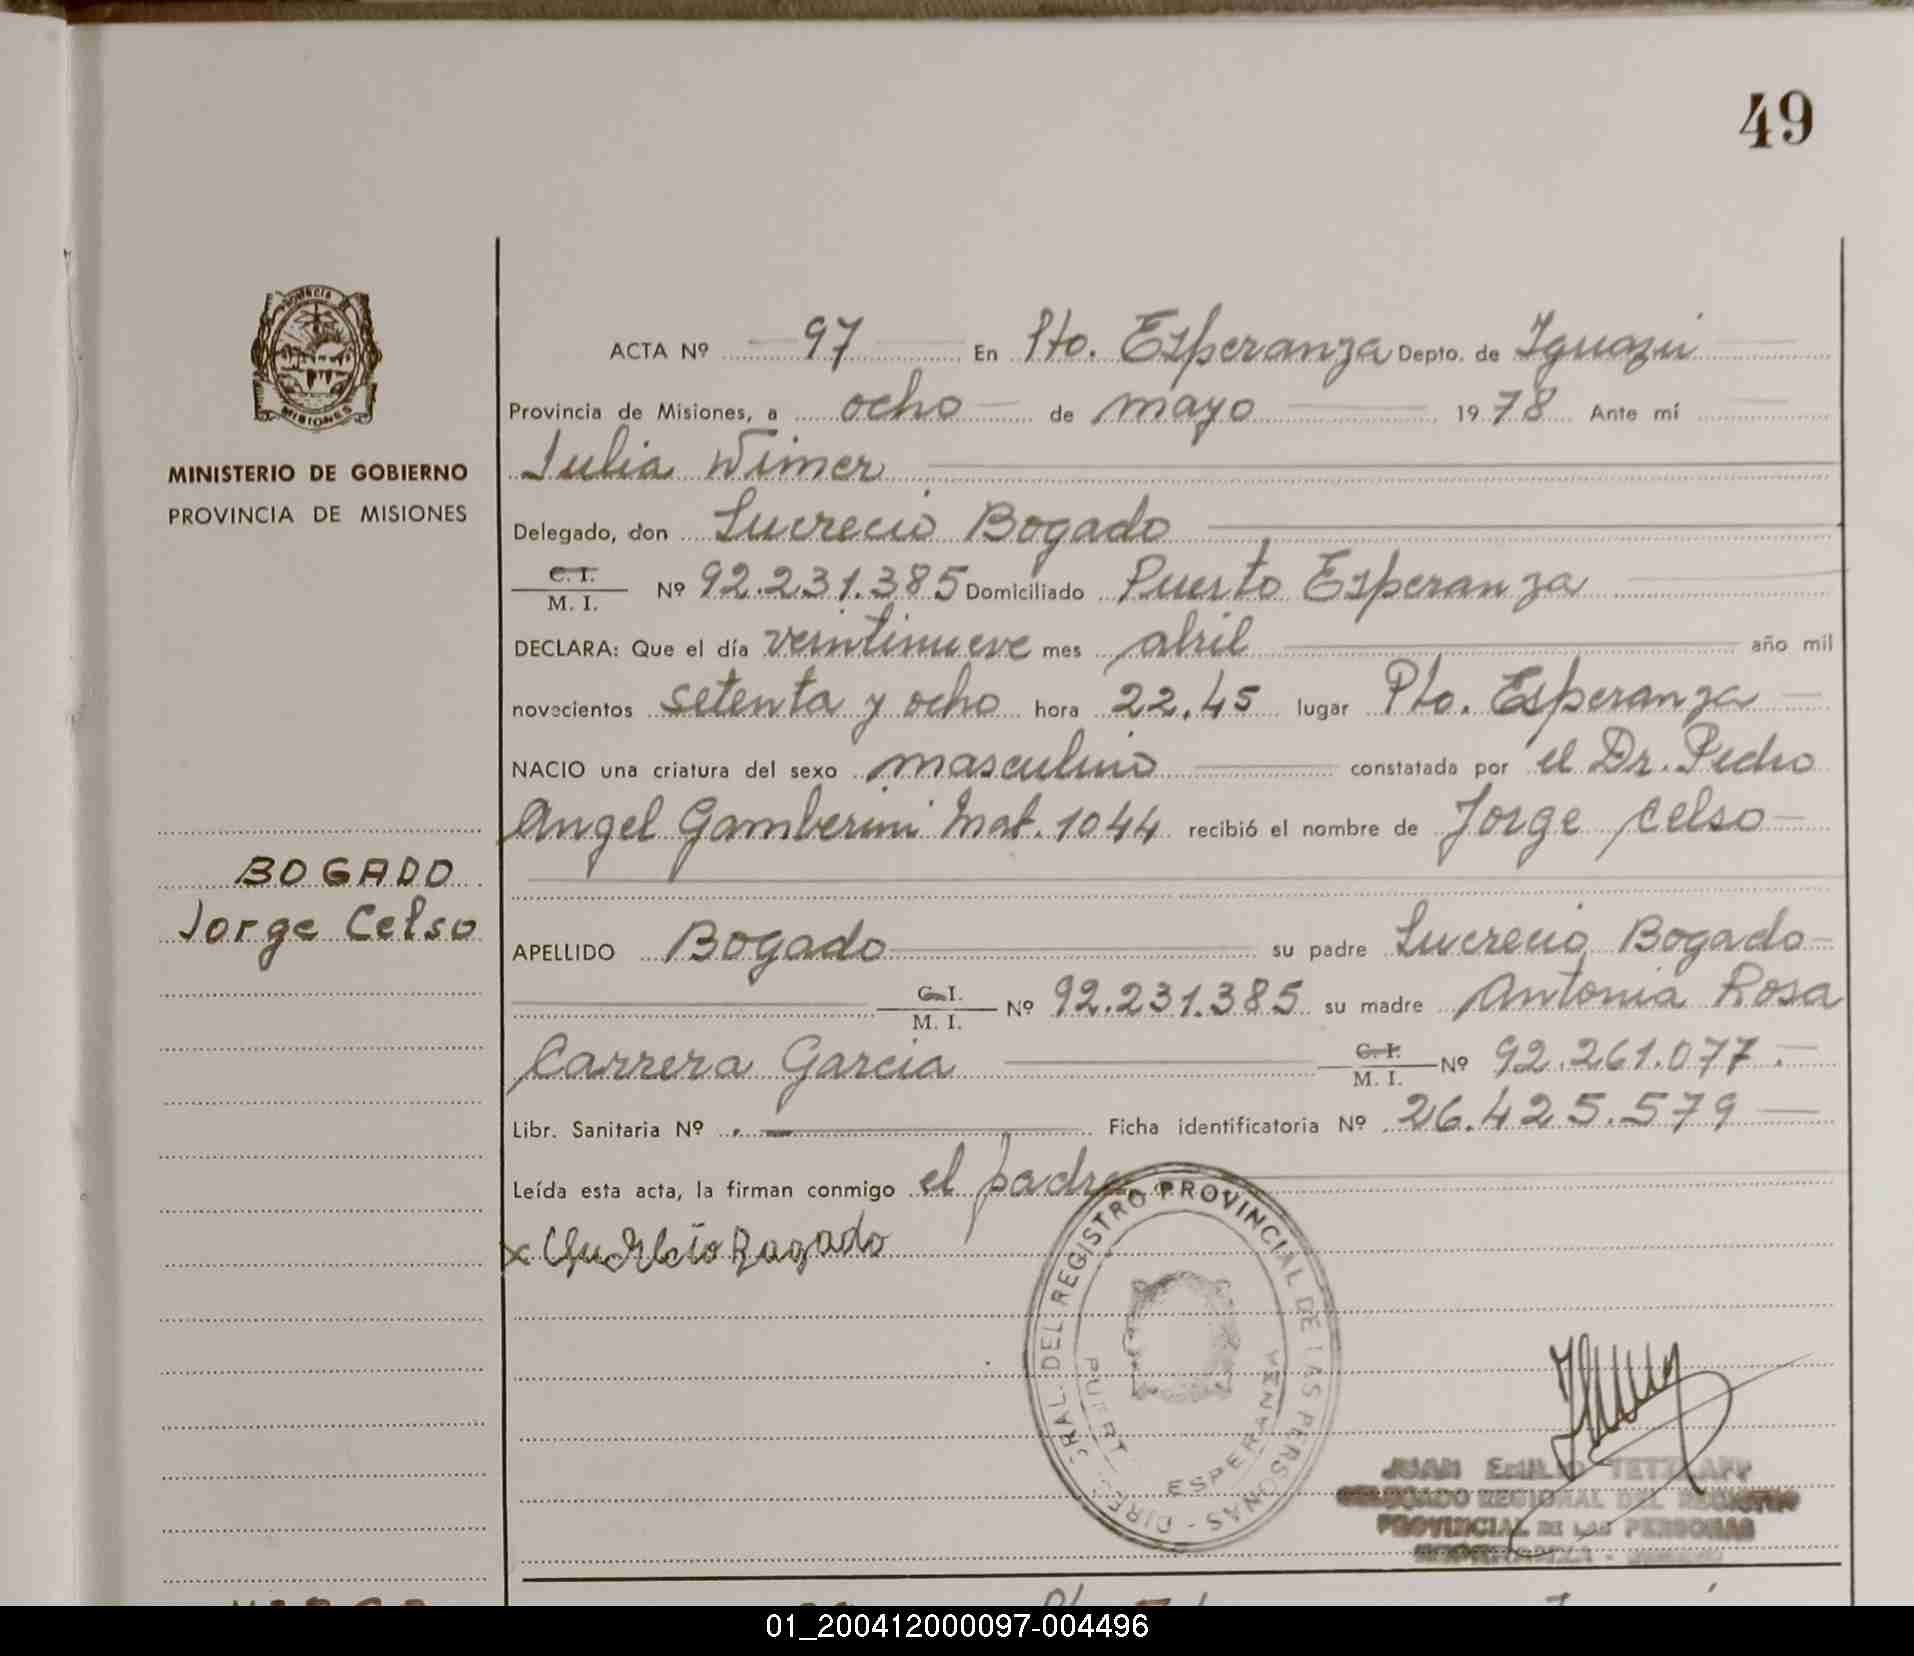 49
PROVINCIA
MISIONES
MINISTERIO DE GOBIERNO
PROVINCIA DE MISIONES
BOGADO
Jorge Celso
ACTA Nº 97 En Pto. Esperanza Depto. de Iguazú
Provincia de Misiones, a ocho de mayo 1978 Ante mí
Julia Wimer
Delegado, don Lucrecio Bogado
C. I.
M. I. Nº 92.231.385 Domiciliado Puerto Esperanza
DECLARA: Que el día veintinueve mes abril año mil
novecientos setenta y ocho hora 22.45 lugar Pto. Esperanza
NACIO una criatura del sexo masculino constatada por el Dr. Pedro
Angel Gamberini Mat. 1044 recibió el nombre de Jorge Celso
APELLIDO Bogado su padre Lucrecio Bogado
C. I.
M. I. Nº 92.231.385 su madre Antonia Rosa
Carrera Garcia C. I.
M. I. Nº 92.261.077.
Libr. Sanitaria Nº Ficha identificatoria Nº 26.425.579
Leída esta acta, la firman conmigo el padre
x Bogado
REGISTRO PROVINCIAL DE LAS PERSONAS
ESPERANZA
JUAN EMILIO
DELEGADO REGIONAL DEL REGISTRO
PROVINCIAL DE LAS PERSONAS
01_200412000097-004496